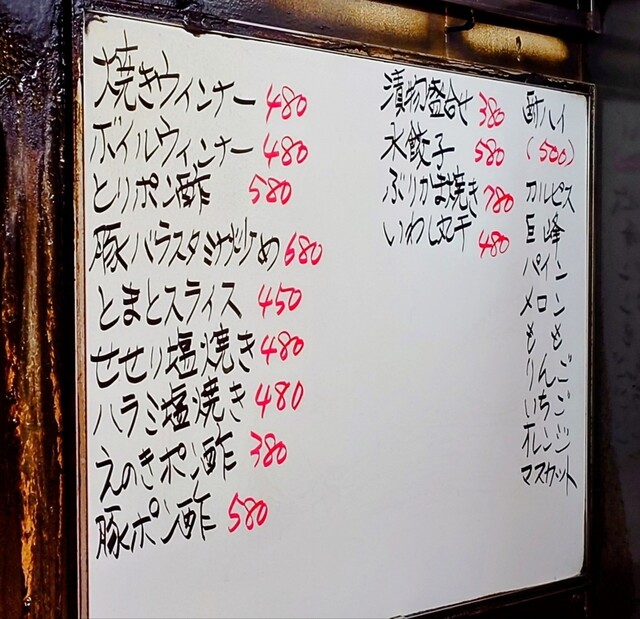 焼きウィンナー 480
ボイルウィンナー 480
とりポン酢 580
豚バラスタミナ炒め 680
とまとスライス 450
せせり塩焼き 480
ハラミ塩焼き 480
えのきポン酢 380
豚ポン酢 580
漬物盛合せ 380
水餃子 580
ぶりかま焼き 780
いわし丸干 480
酎ハイ
(500)
カルピス
巨峰
パイン
メロン
もも
りんご
いちご
オレンジ
マスカット